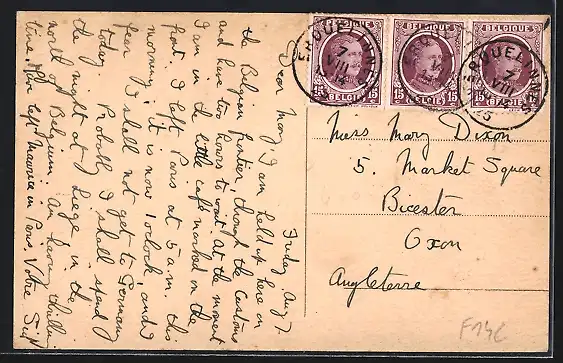 BELGIQUE BELGIQUE BELGIQUE
15 BELGIE 15 15 BELGIE 15 15 BELGIE 15
ERQUELINNES
7
VIII
Friday Aug 7
Dear Mary I am held up here on
the Belgian frontier, through the Customs
and have two hours to wait. At the moment
I am in the little café marked on the
front. I left Paris at 5 a.m. this
morning; it is now 1 o'clock, and I
fear I shall not get to Germany
today. Probably I shall spend
the night at Liege in the
north of Belgium. Am having thrilling
time. Have left Maurice in Paris Votre
Miss Mary Dixon
5. Market Square
Bicester
Oxon
Angleterre